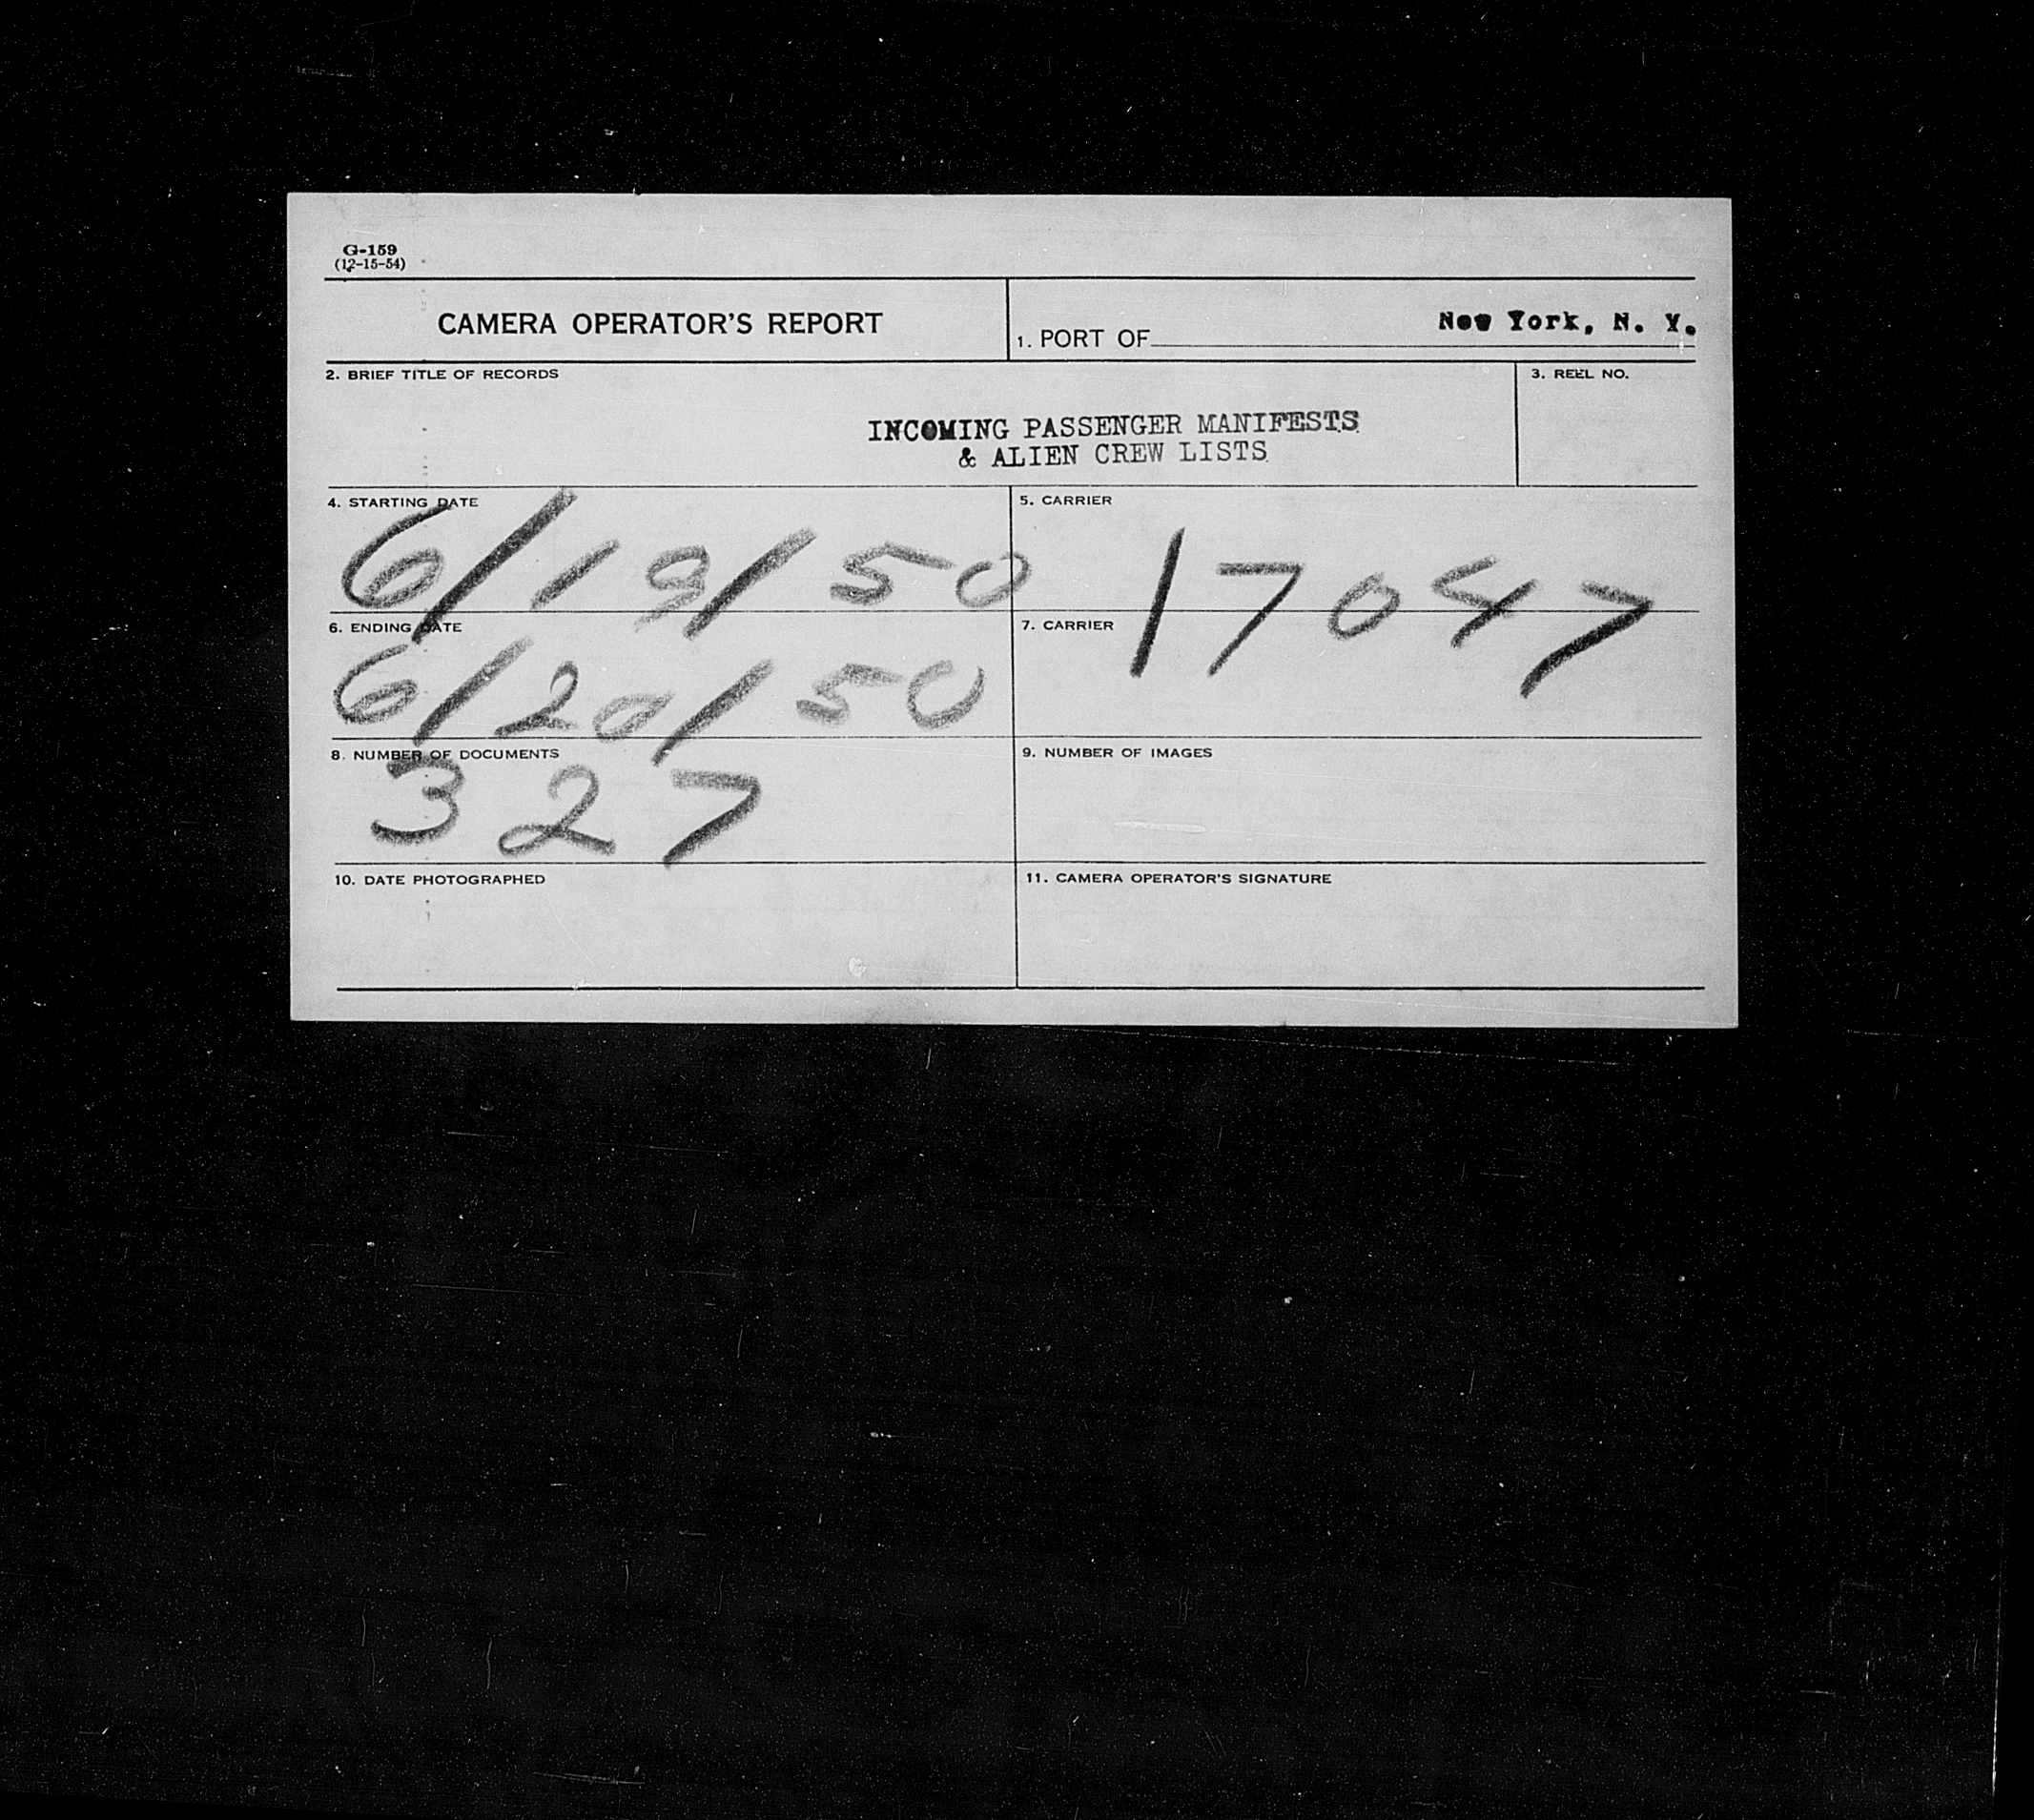 G-159
(12-15-54)
CAMERA OPERATOR'S REPORT
1. PORT OF New York, N. Y.
2. BRIEF TITLE OF RECORDS
3. REEL NO.
INCOMING PASSENGER MANIFESTS
& ALIEN CREW LISTS
4. STARTING DATE
6/19/50
5. CARRIER
17047
6. ENDING DATE
6/20/50
7. CARRIER
8. NUMBER OF DOCUMENTS
327
9. NUMBER OF IMAGES
10. DATE PHOTOGRAPHED
11. CAMERA OPERATOR'S SIGNATURE